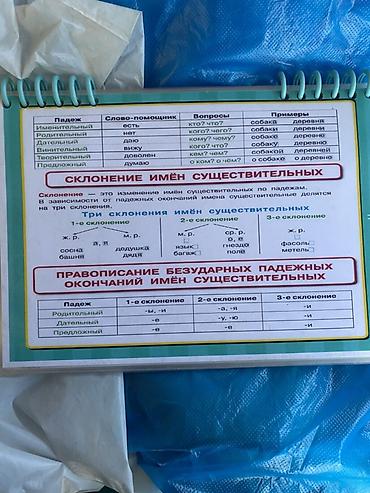 Падеж Слово-помощник Вопросы Примеры
Именительный есть кто? что? собака деревня
Родительный нет кого? чего? собаки деревни
Дательный даю кому? чему? собаке деревне
Винительный вижу кого? что? собаку деревню
Творительный доволен кем? чем? собакой деревней
Предложный думаю о ком? о чём? о собаке о деревне
СКЛОНЕНИЕ ИМЁН СУЩЕСТВИТЕЛЬНЫХ
Склонение — это изменение имён существительных по падежам.
В зависимости от падежных окончаний имена существительные делятся
на три склонения.
Три склонения имён существительных
1-е склонение 2-е склонение 3-е склонение
ж. р. м. р. м. р. ср. р. ж. р.
а, я о, е
сосна дедушка язык гнездо фасоль
башня дядя багаж поле метель
ПРАВОПИСАНИЕ БЕЗУДАРНЫХ ПАДЕЖНЫХ
ОКОНЧАНИЙ ИМЁН СУЩЕСТВИТЕЛЬНЫХ
Падеж 1-е склонение 2-е склонение 3-е склонение
Родительный -ы, -и -а, -я -и
Дательный -е -у, -ю -и
Предложный -е -е -и